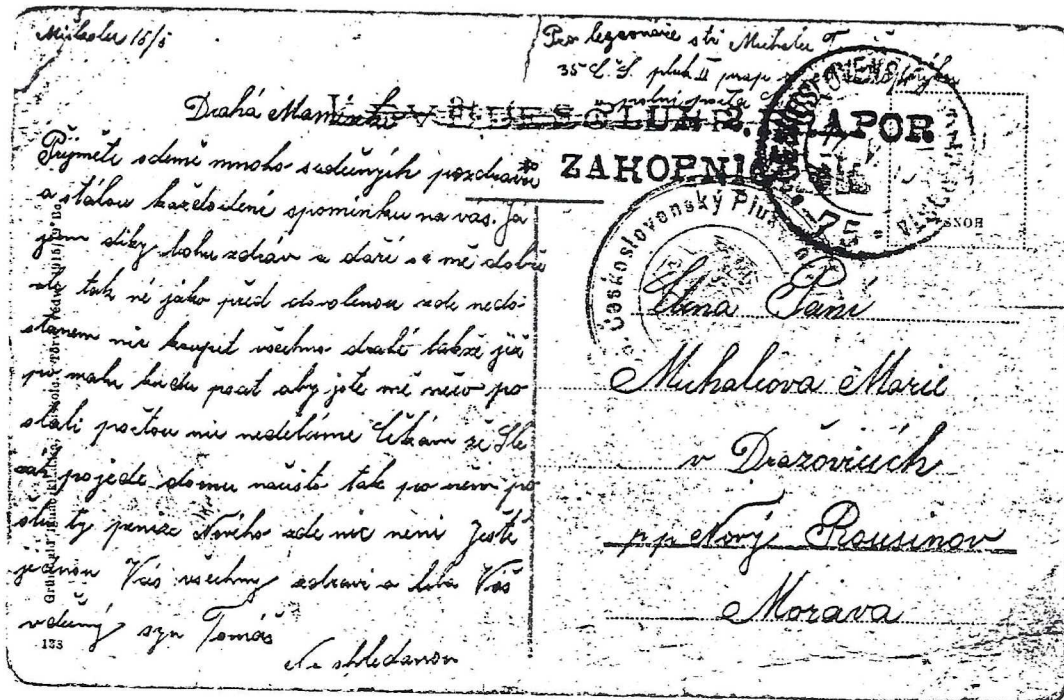 Miškolec 15/5
Drahá Maminko
Přijměte odemě mnoho srdečných pozdravů
a stálou každodení spomínku na vás. Já
jsem díky bohu zdráv a daří se mě dobře
ale tak né jako před dovolenou zde nedo-
stanem nic koupit všechno drahé takže již
po malu budu psat aby jste mě něco po
slali poštou nic neděláme čekám že Sle
zák pojede domu načisto tak po něm po
šlu ty peníze Nového zde nic není Ještě
jednou Vás všechny zdraví a líbá Váš
vděčný syn Tomáš
Na shledanou
133
Pro legionáře stř Michalu T
35 Č. S. pluk II prap
polní pošta
LAPOR
ZAKOPNI
75
Československý Pluk
Ctěná Paní
Michalcova Marie
v Dražovicích
p.p. Nový Rousinov
Morava